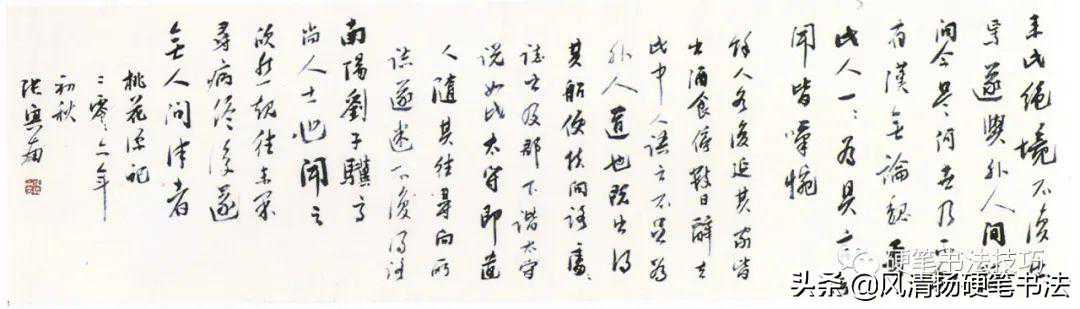 来此绝境不复出
焉遂與外人间
间今是何世乃不
有漢無論魏晋
此人一一为具言
聞皆嘆惋
餘人各復延其家皆
出酒食停数日辭去
此中人語云不足为
外人道也既出得
其船便扶向路處、
誌之及郡下诣太守
说如此太守即遣
人隨其往尋向所
誌遂迷不復得路
南陽劉子驥高
尚人士也聞之
欣然規往未果
尋病终後遂
無人问津者
桃花源记
二零〻六年
初秋
张
硬笔书法技巧
头条@风清扬硬笔书法